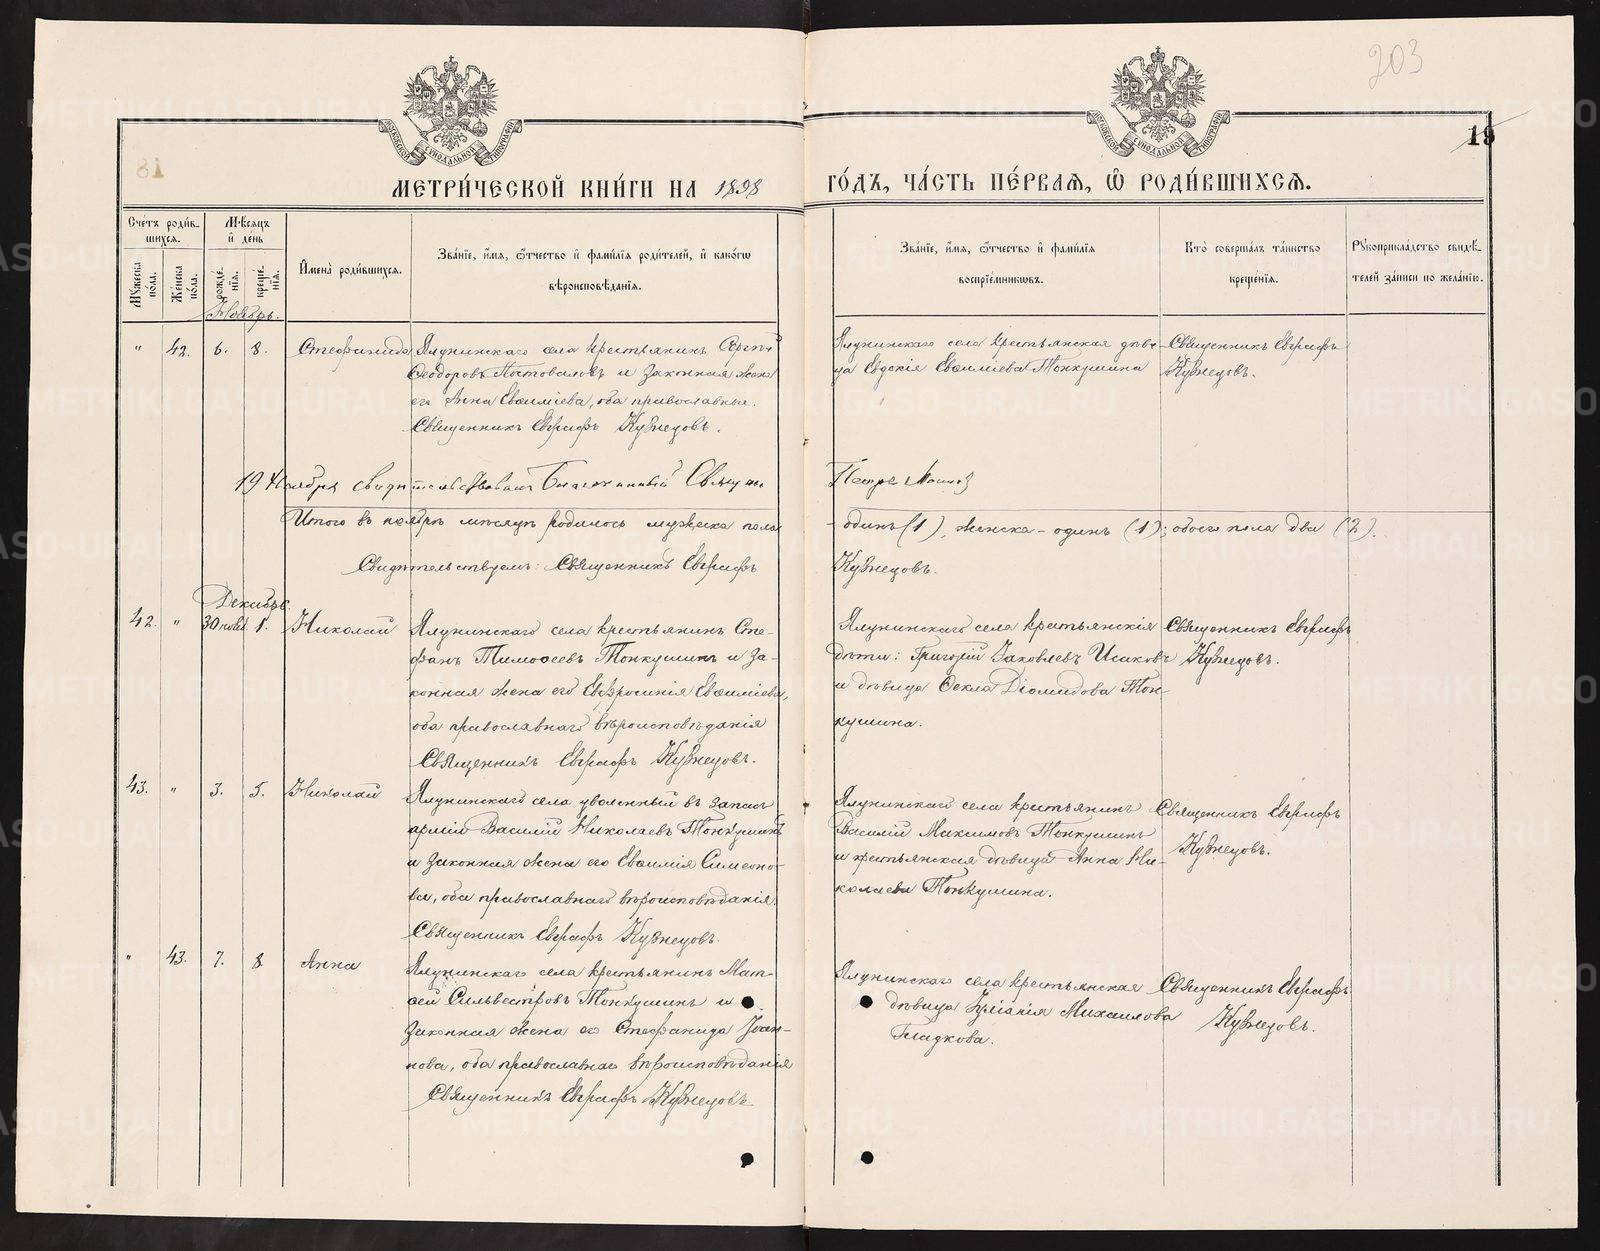 203
19
18
МЕТРИ́ЧЕСКОЙ КНИ́ГИ НА 1898 ГО́ДЪ, ЧА́СТЬ ПЕ́РВАЯ, Ѡ РОДИ́ВШИХСЯ.
Сче́тъ роди́в-
шихся.
Му́жеска по́ла.
Же́нска по́ла.
Мѣ́сяцъ
и де́нь
рожде́-
нїя.
креще́-
нїя.
Имена̀ роди́вшихся.
Зва́нїе, и́мя, ѻ́тчество и фами́лїя роди́телей, и како́гѡ
вѣроисповѣ́данїя.
Зва́нїе, и́мя, ѻ́тчество и фами́лїя
воспрїе́мниковъ.
Кто̀ соверша́лъ та́инство
креще́нїя.
Рꙋкоприкла́дство свидѣ́-
телей за́писи по жела́нїю.
Ноябрь.
" 42. 6. 8. Стефанида
Ялунинскаго села крестьянинъ Сергѣй
Ѳеодоровъ Постоваловъ и законная жена
его Анна Евѳиміева, оба православные.
Священникъ Евграфъ Кузнецовъ.
Ялунинскаго села крестьянская дѣви-
ца Евдокія Евѳиміева Тонкушина
Священникъ Евграфъ
Кузнецовъ.
19 Ноября свидѣтельствовалъ Благочинный Священ
Петръ
Итого въ ноябрѣ мѣсяцѣ родилось мужеска пола - одинъ (1), женска - одинъ (1); обоего пола два (2).
Свидѣтельствуемъ: Священникъ Евграфъ Кузнецовъ.
Декабрь.
42. " 30 нояб. 1. Николай
Ялунинскаго села крестьянинъ Сте-
фанъ Тимоѳеевъ Тонкушинъ и за-
конная жена его Евфросинія Евѳиміева,
оба православнаго вѣроисповѣданія
Священникъ Евграфъ Кузнецовъ.
Ялунинскаго села крестьянскія
дѣти: Григорій Іаковлевъ Исаковъ
и дѣвица Ѳекла Діомидова Тон-
кушина.
Священникъ Евграфъ
Кузнецовъ.
43. " 3. 5. Николай
Ялунинскаго села уволенный въ запасъ
арміи Василій Николаевъ Тонкушинъ
и законная жена его Евѳимія Симеоно-
ва, оба православнаго вѣроисповѣданія.
Священникъ Евграфъ Кузнецовъ.
Ялунинскаго села крестьянинъ
Василій Максимовъ Тонкушинъ
и крестьянская дѣвица Анна Ни-
колаева Тонкушина.
Священникъ Евграфъ
Кузнецовъ.
" 43. 7. 8 Анна
Ялунинскаго села крестьянинъ Мат-
ѳей Сильвестровъ Тонкушинъ и
законная жена его Стефанида Іоан-
нова, оба православнаго вѣроисповѣданія
Священникъ Евграфъ Кузнецовъ
Ялунинскаго села крестьянская
дѣвица Іуліанія Михаилова
Гладкова.
Священникъ Евграфъ
Кузнецовъ.
METRIKI.GASO-URAL.RU